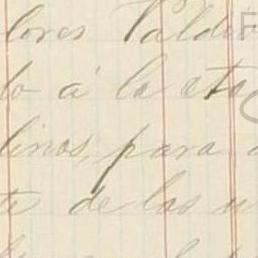 lores Valdi
lo á la eta
linos, para
te de las